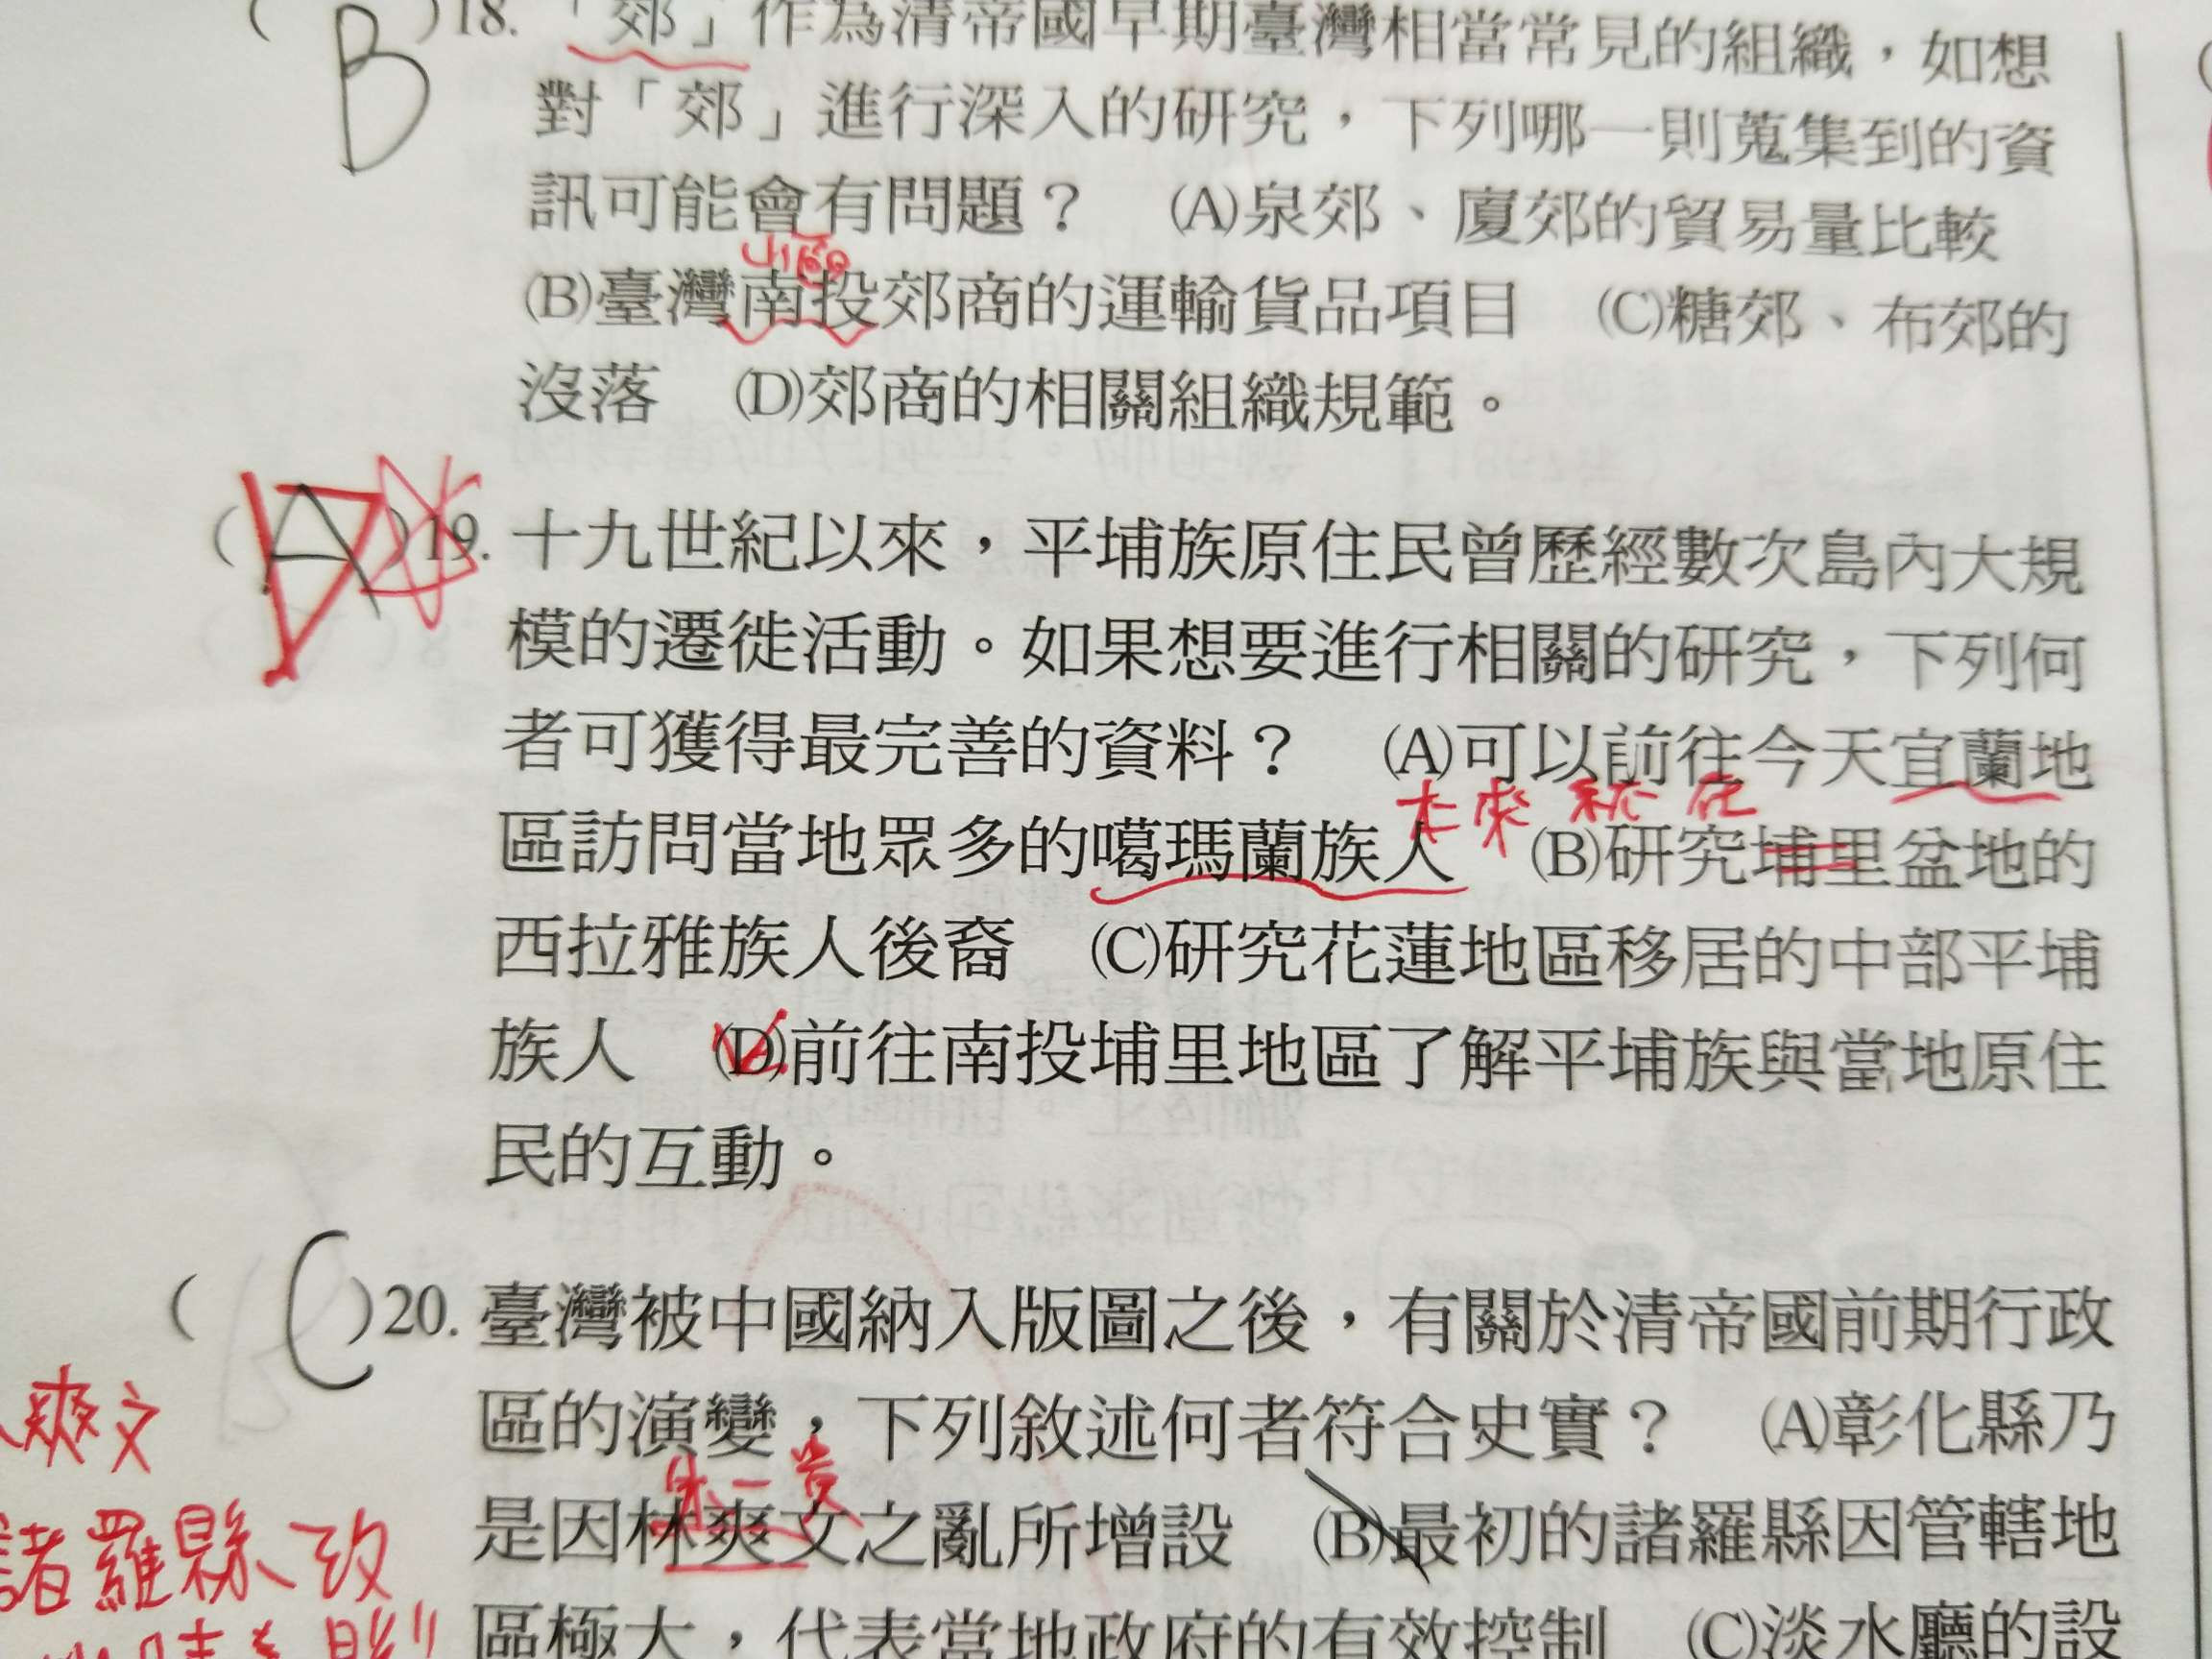 ( B )18.「郊」作為清帝國早期臺灣相當常見的組織，如想
對「郊」進行深入的研究，下列哪一則蒐集到的資
訊可能會有問題？ (A)泉郊、廈郊的貿易量比較
(B)臺灣南投郊商的運輸貨品項目 (C)糖郊、布郊的
沒落 (D)郊商的相關組織規範。
( A )19.十九世紀以來，平埔族原住民曾歷經數次島內大規
模的遷徙活動。如果想要進行相關的研究，下列何
者可獲得最完善的資料？ (A)可以前往今天宜蘭地
區訪問當地眾多的噶瑪蘭族人 (B)研究埔里盆地的
西拉雅族人後裔 (C)研究花蓮地區移居的中部平埔
族人 (D)前往南投埔里地區了解平埔族與當地原住
民的互動。
( C )20.臺灣被中國納入版圖之後，有關於清帝國前期行政
區的演變，下列敘述何者符合史實？ (A)彰化縣乃
爽文
朱一貴
是因林爽文之亂所增設 (B)最初的諸羅縣因管轄地
諸羅縣改
區極大，代表當地政府的有效控制 (C)淡水廳的設